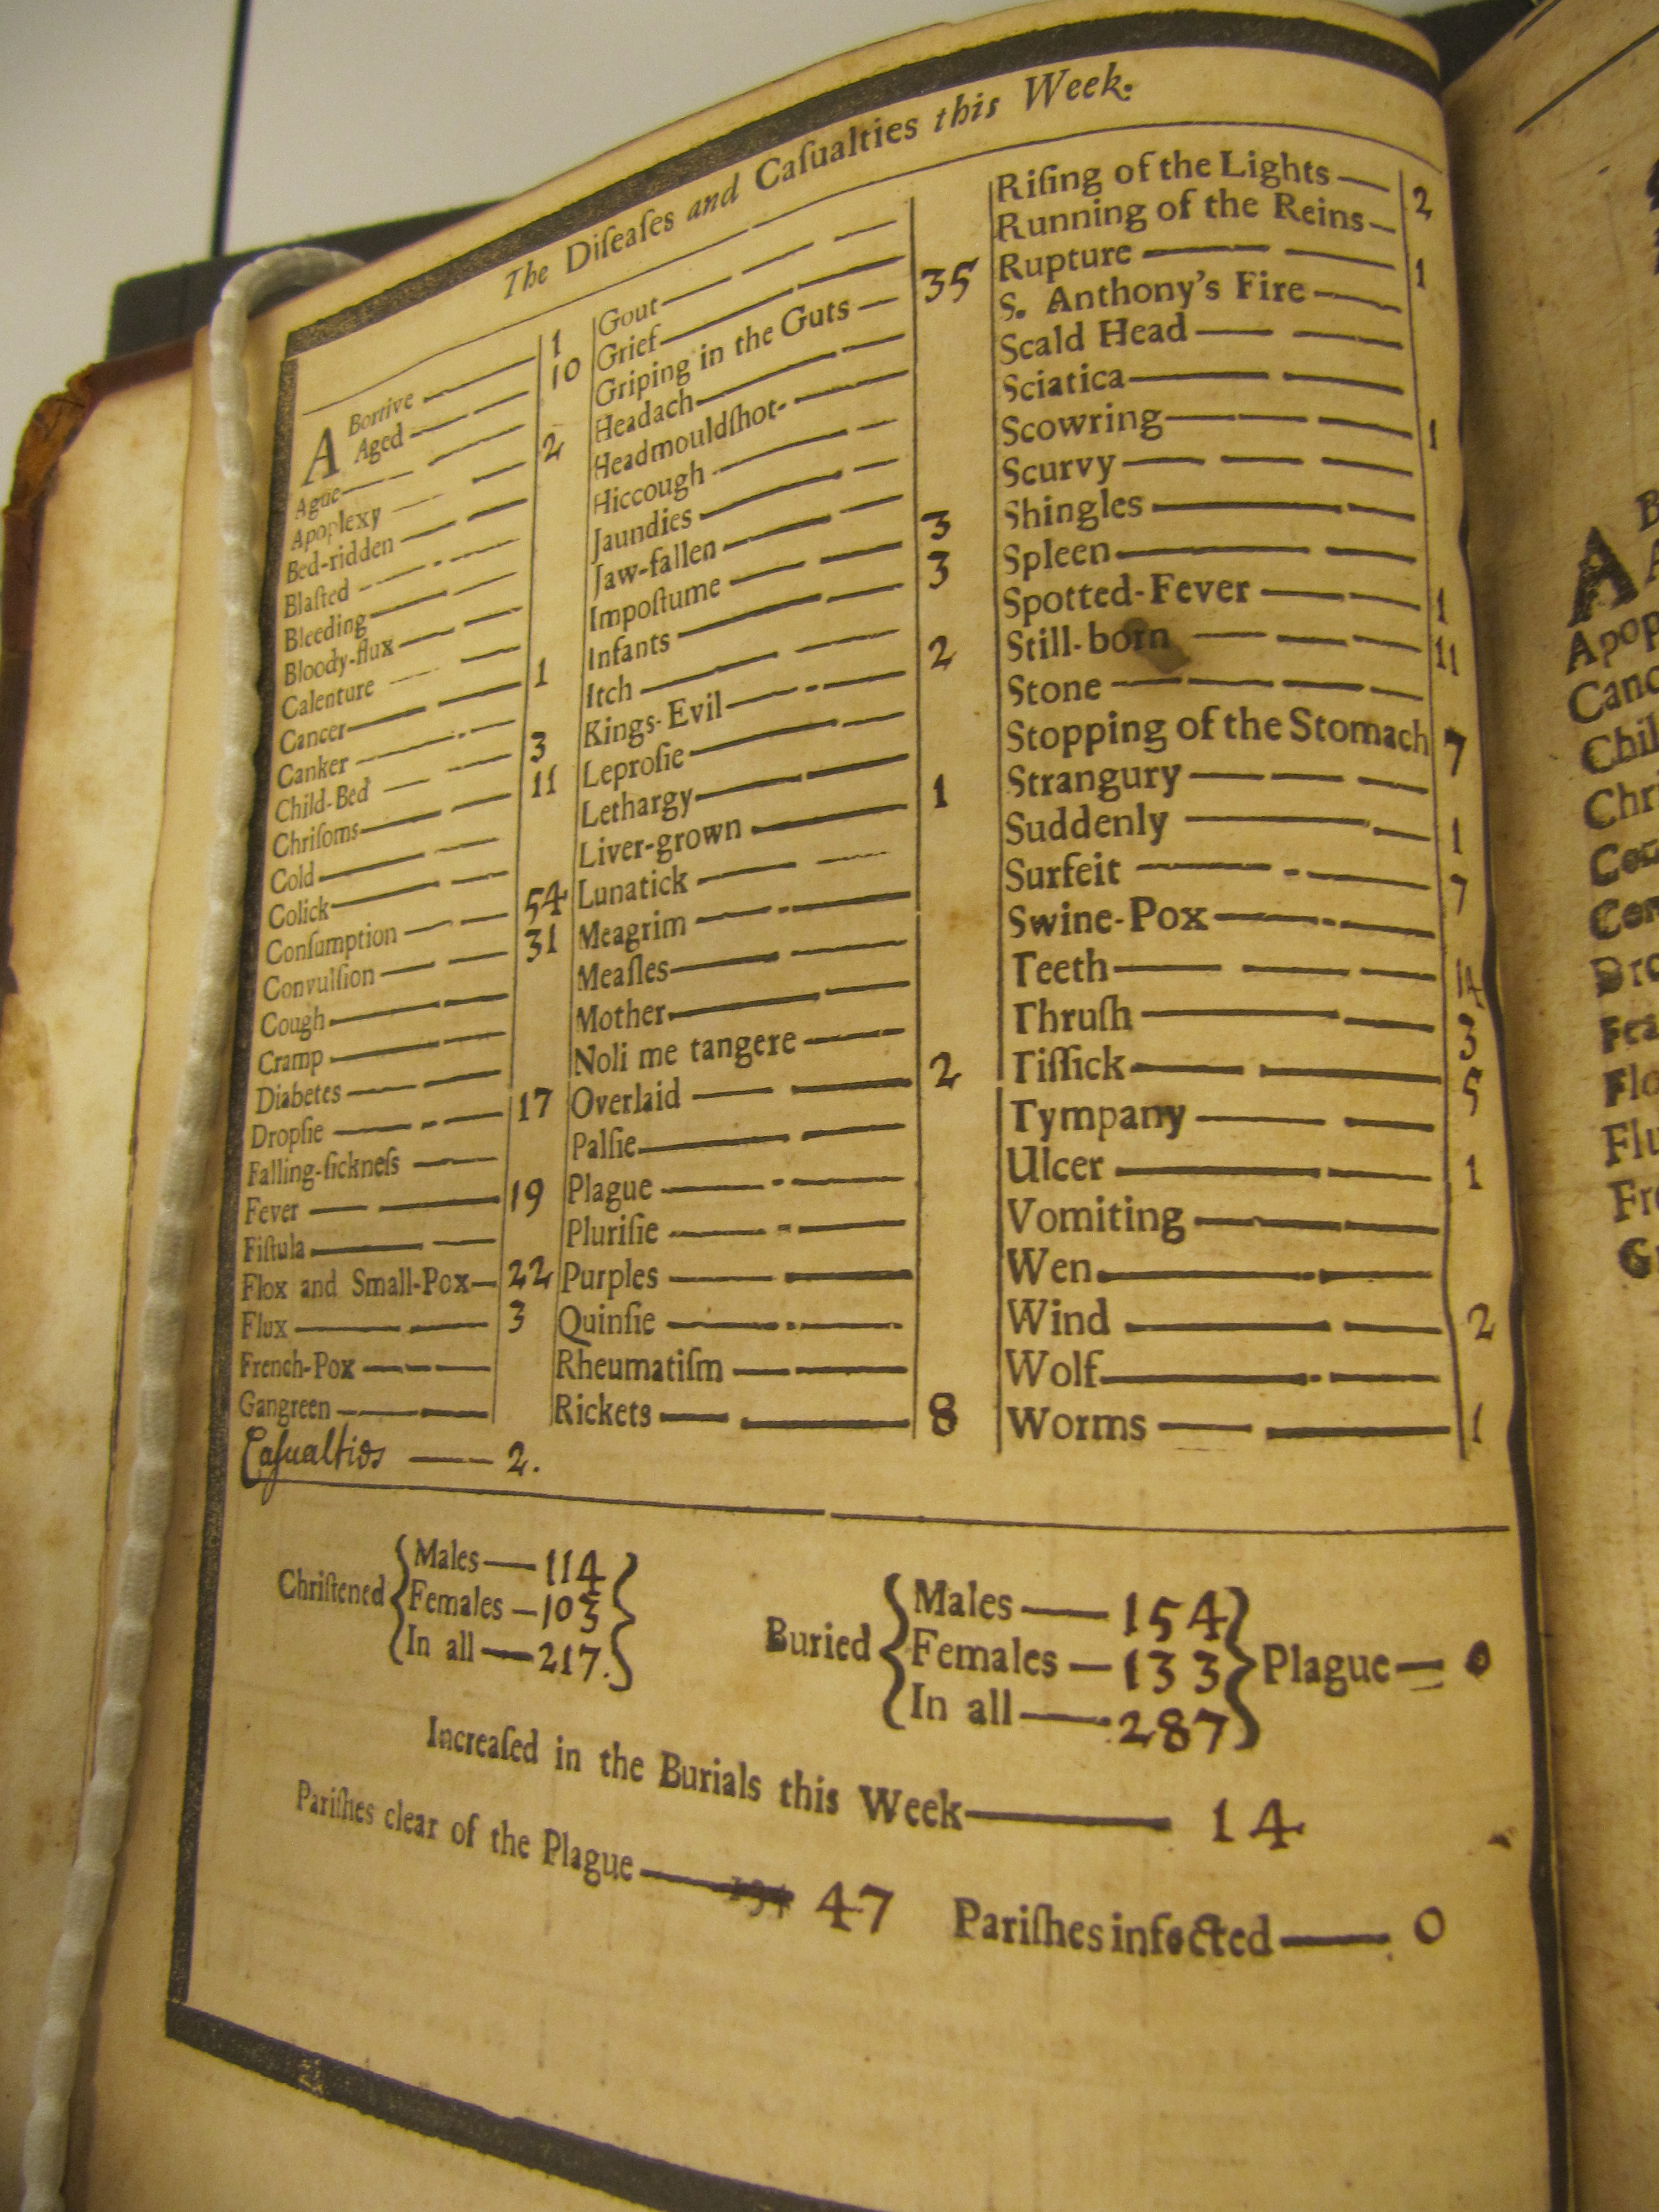 The Diſeaſes and Caſualties this Week.
ABortive — 1
Aged — 10
Ague
Apoplexy — 2
Bed-ridden
Blaſted
Bleeding
Bloody-flux
Calenture
Cancer — 1
Canker
Child-Bed — 3
Chriſoms — 11
Cold
Colick
Conſumption — 54
Convulſion — 31
Cough
Cramp
Diabetes
Dropſie — 17
Falling-ſickneſs
Fever — 19
Fiſtula
Flox and Small-Pox — 22
Flux — 3
French-Pox
Gangreen
Caſualties — 2.
Gout
Grief
Griping in the Guts — 35
Headach
Headmouldſhot-
Hiccough
Jaundies
Jaw-fallen
Impoſtume — 3
Infants — 3
Itch
Kings-Evil — 2
Leproſie
Lethargy
Liver-grown — 1
Lunatick
Meagrim
Meaſles
Mother
Noli me tangere
Overlaid — 2
Palſie
Plague
Pluriſie
Purples
Quinſie
Rheumatiſm
Rickets — 8
Riſing of the Lights — 2
Running of the Reins
Rupture — 1
S. Anthony's Fire
Scald Head
Sciatica
Scowring — 1
Scurvy
Shingles
Spleen
Spotted-Fever — 1
Still-born — 11
Stone
Stopping of the Stomach 7
Strangury
Suddenly — 1
Surfeit — 7
Swine-Pox
Teeth — 14
Thruſh — 3
Tiſſick — 5
Tympany
Ulcer — 1
Vomiting
Wen
Wind — 2
Wolf
Worms — 1
Chriſtened
Males — 114
Females — 103
In all — 217.
Buried
Males — 154
Females — 133
In all — 287
Plague — 0
Increaſed in the Burials this Week — 14
Pariſhes clear of the Plague — 47 Pariſhes infected — 0